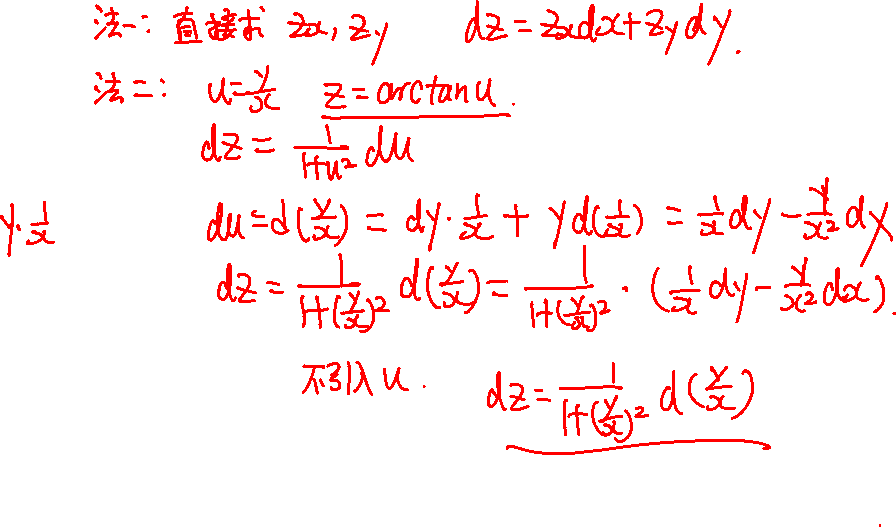 法一: 直接求 zx, zy dz = zxdx + zydy.
法二: u=y/x z = arctanu.
dz = 1/(1+u²) du
y·1/x du = d(y/x) = dy·1/x + yd(1/x) = 1/x dy - y/x² dy
dz = 1/(1+(y/x)²) d(y/x) = 1/(1+(y/x)²) · (1/x dy - y/x² dx).
不引入 u. dz = 1/(1+(y/x)²) d(y/x)